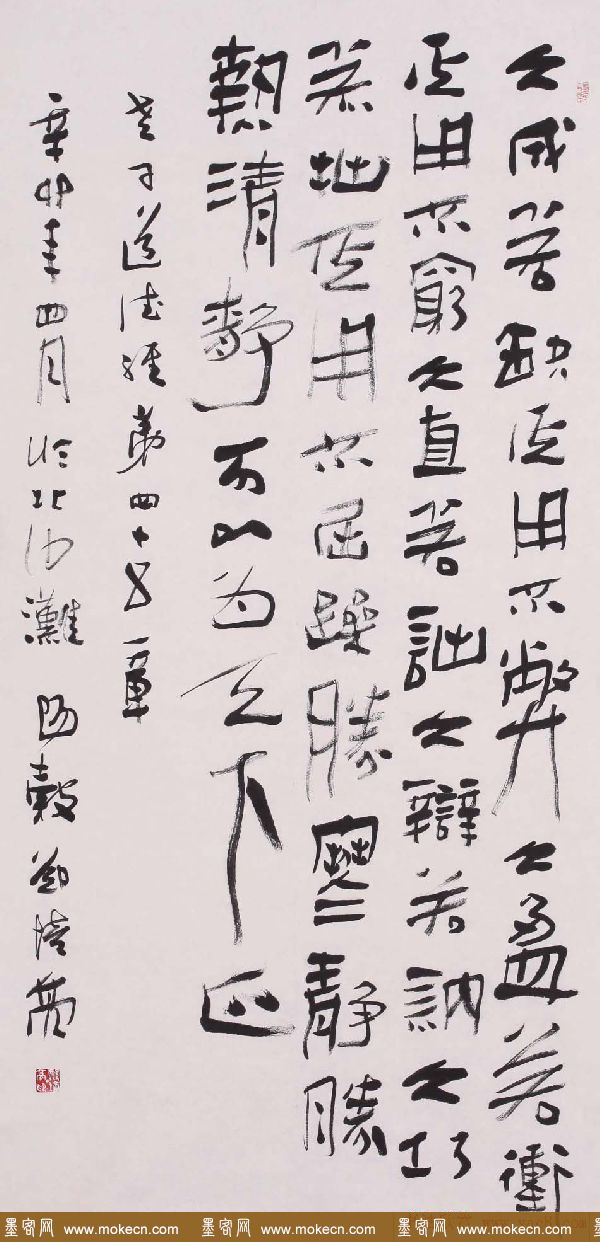 大成若缺其用不弊大盈若衝
其用不窮大直若詘大辯若訥大巧
若拙其用不屈躁勝寒靜勝
熱清靜可以為天下正
老子道德經第四十五章
辛卯年四月於北沙灘 陽穀鄭培亮
墨客网 www.mokecn.com 墨客网 www.mokecn.com 墨客网 www.mokecn.com